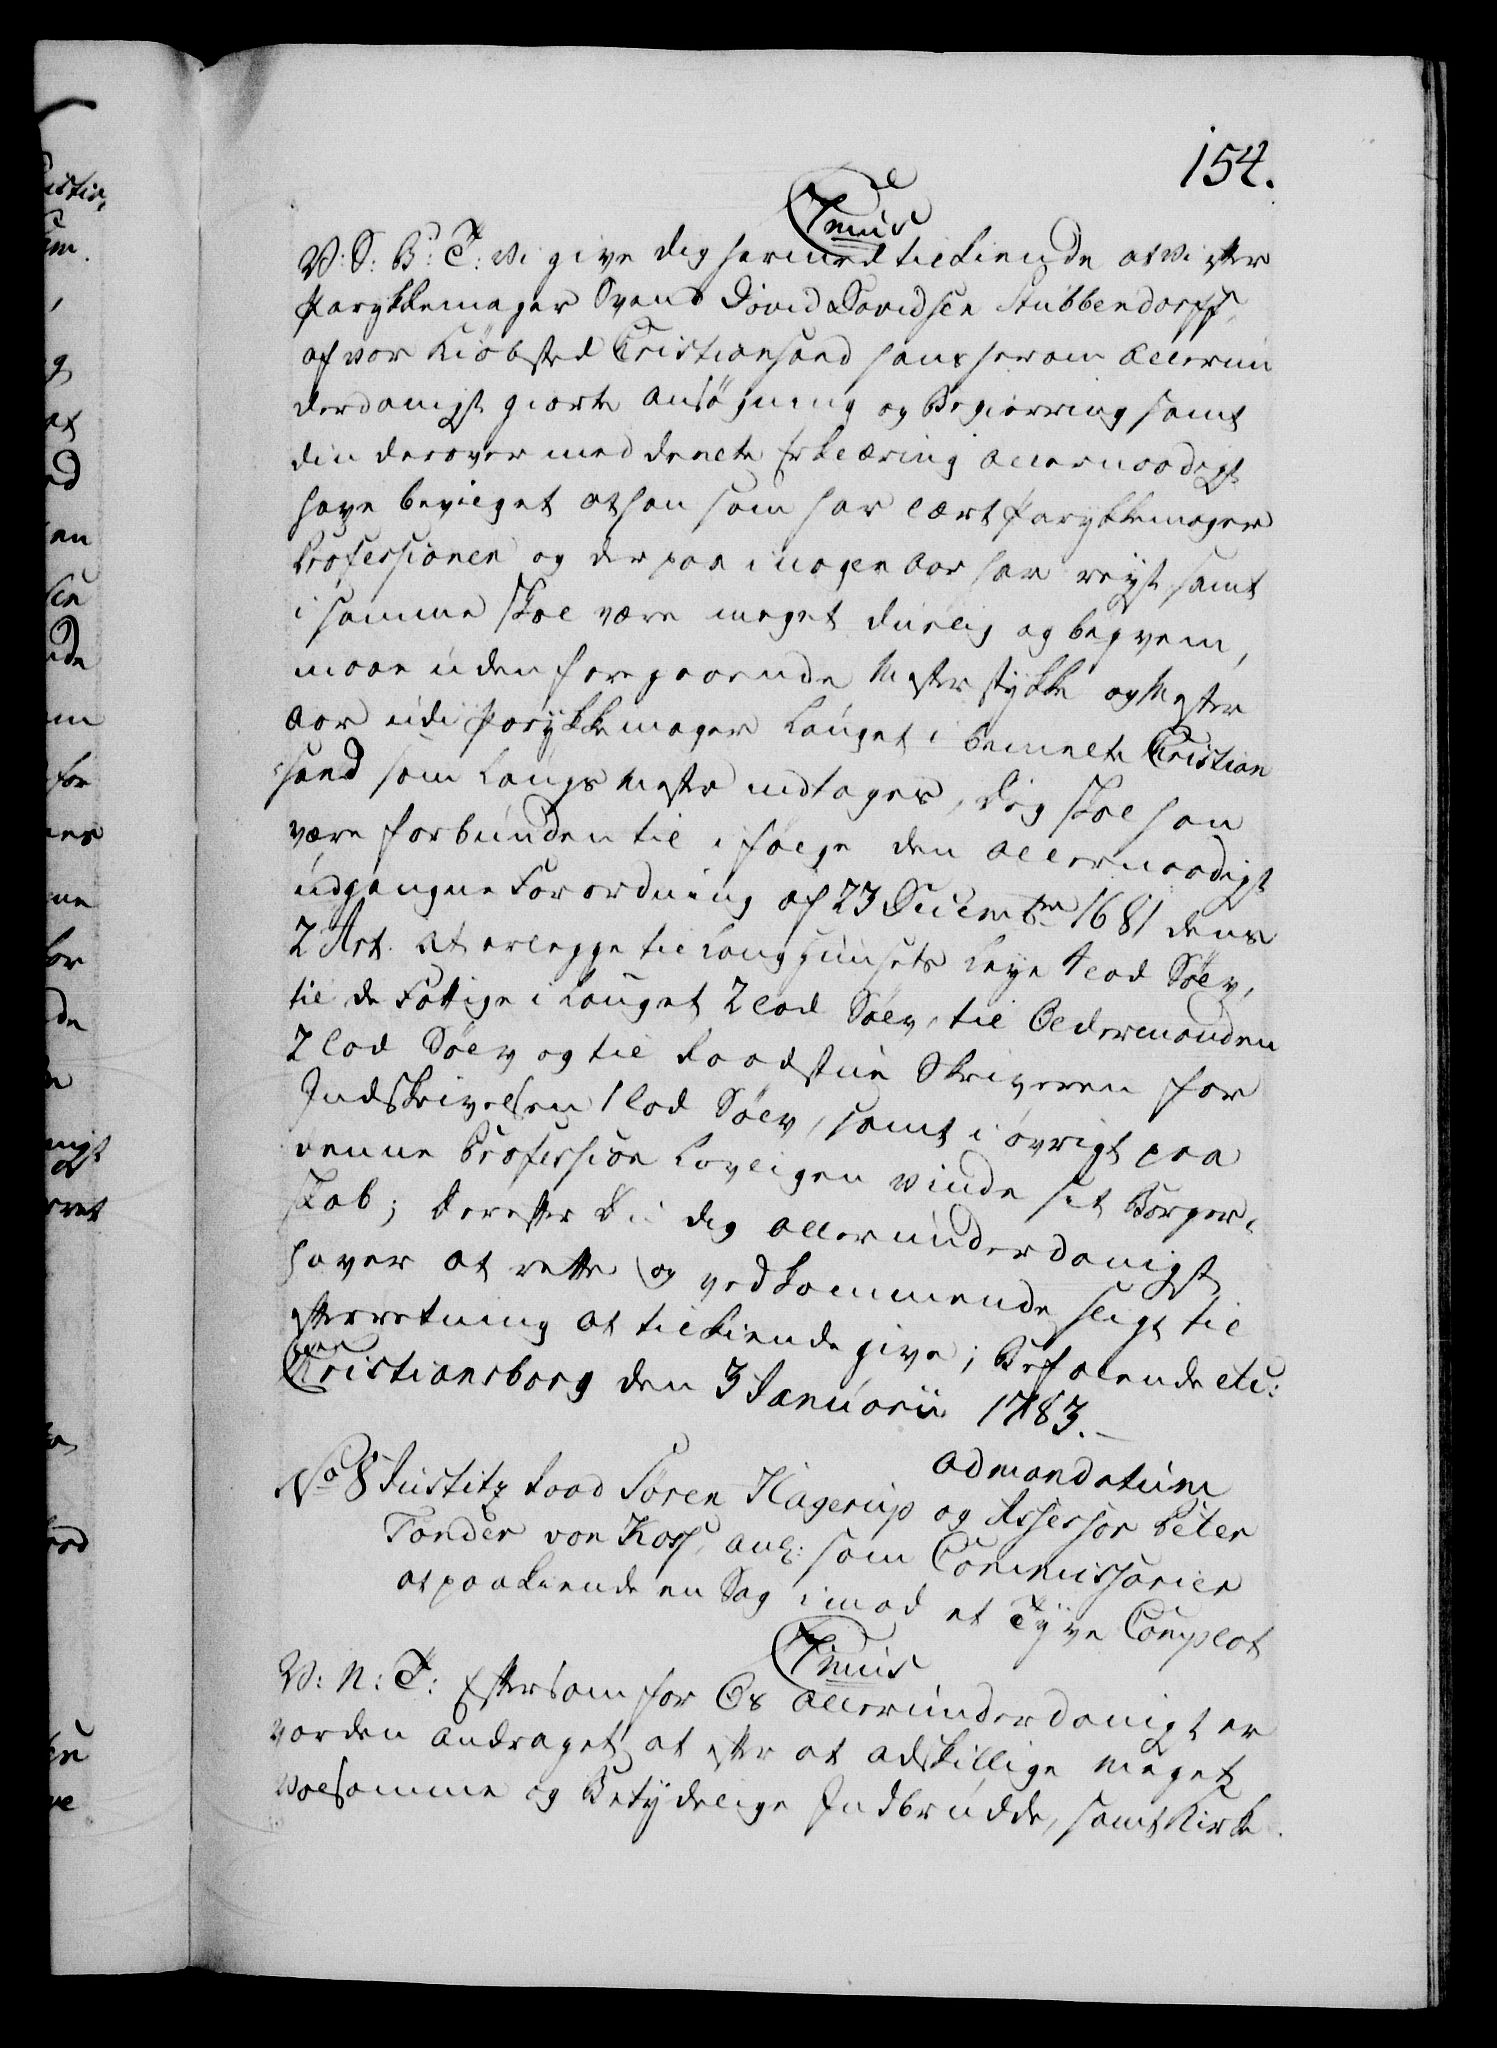 154.
V: S: B: T: Vi give dig hermed tilkiende at Vi efter
Parykkemager Svend David Davidsen Stubbendorff,
af vor Kiøbsted Cristiansand hans herom allerun
derdanigst giorte ansøgning og Begiæring samt
din derover meddeelte Erklæring allernaadigst
have bevilget at han som har lært Parykkemager
Professionen og derpaa i nogen Aar har reyst samt
i samme skal være meget duelig og beqvem,
maae uden foregaaende Mesterstykke og Mester
Aar udi Parykkemager Lauget i bemelte Cristian
sand som Laugs Mester indtages, dog skal han
være forbunden til i følge den allernaadigst
udgangne Forordning af 23 Decembr 1681 dens
2 Art. at erlegge til Laugshuusets Leye 4 lod Sølv,
til de Fattige i Lauget 2 lod Sølv, til Oldermanden
2 lod Sølv og til Raadstue Skriveren for
Indskrivelsen 1 lod Sølv, samt i øvrigt paa
denne Profession lovligen vinde sit Borger-
skab; derefter du dig allerunderdanigst
haver at rette og vedkommende sligt til
efterretning at tilkiende give; Befalende etc:
Cristiansborg den 3 Januarii 1783.
ad mandatum
No 8 Justitz Raad Søren Hagerup og Assessor Peter
Fonder von Koss, anl: som Commissarier
at paakiende en Sag imod et Tyve Complot
V: N: T: Eftersom for Os allerunderdanigst er
vorden andraget, at efter at adskillige meget
voldsomme og Betydelige Indbrudde, samt Kirke